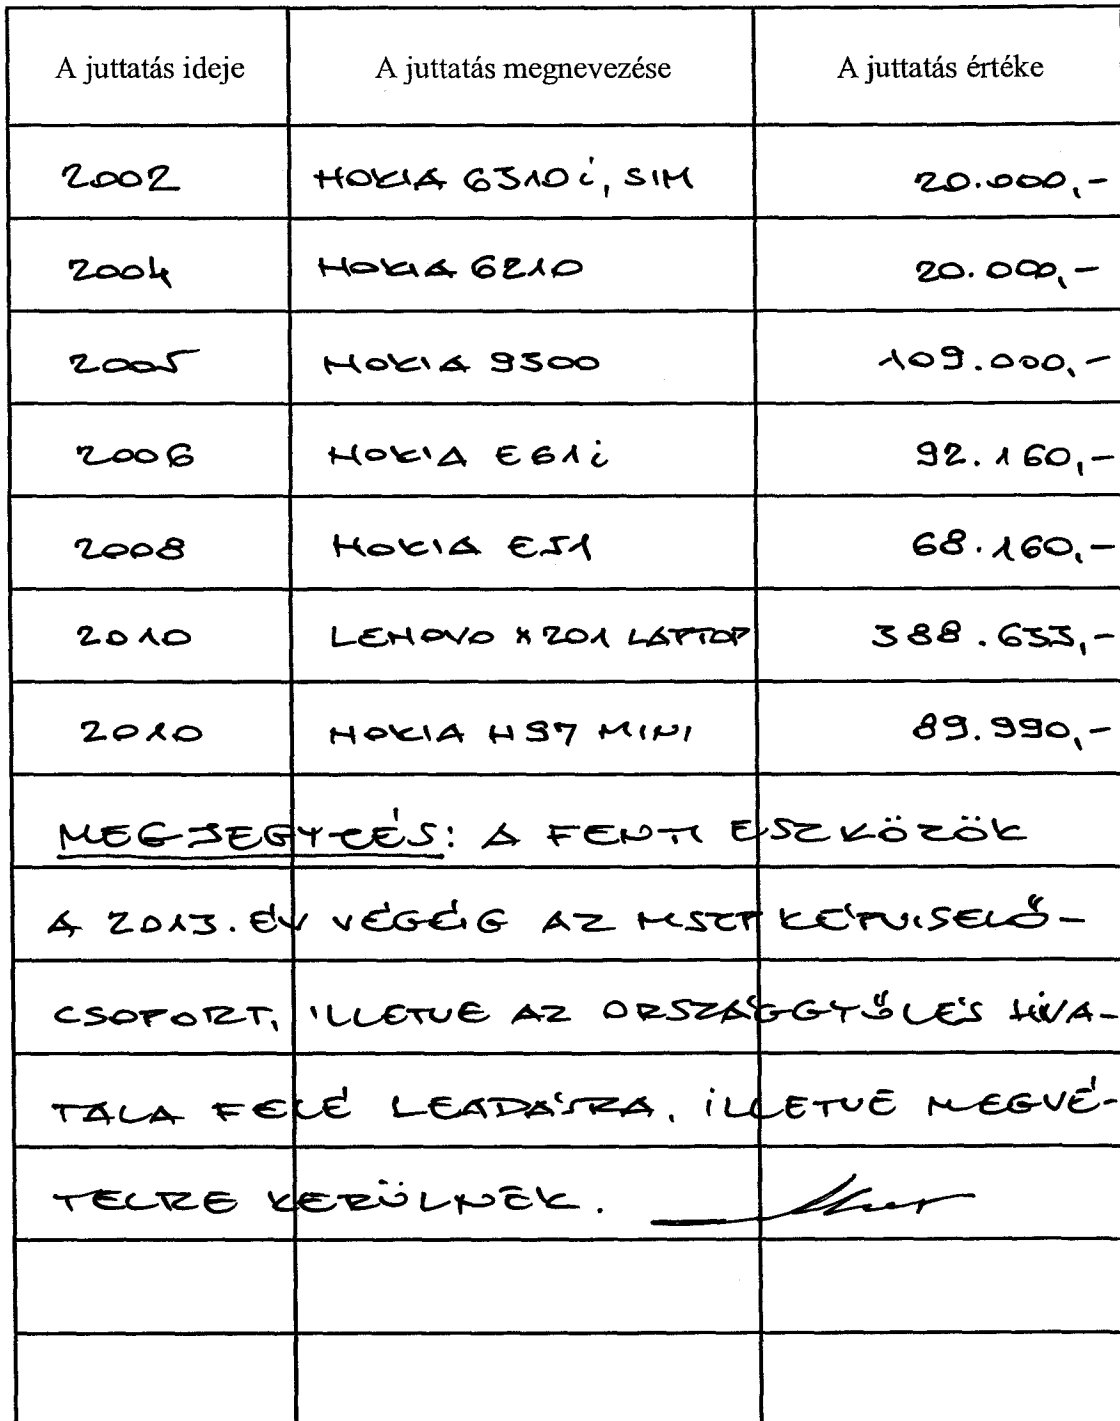 A juttatás ideje A juttatás megnevezése A juttatás értéke
2002 NOKIA 6310i, SIM 20.000,-
2004 NOKIA 6210 20.000,-
2005 NOKIA 9300 109.000,-
2006 NOKIA E61i 92.160,-
2008 NOKIA E51 68.160,-
2010 LENOVO X201 LAPTOP 388.633,-
2010 NOKIA N97 MINI 89.990,-
MEGJEGYZÉS: A FENTI ESZKÖZÖK
A 2013. ÉV VÉGÉIG AZ MSZP KÉPVISELŐ-
CSOPORT, ILLETVE AZ ORSZÁGGYŰLÉS HIVA-
TALA FELÉ LEADÁSRA, ILLETVE MEGVÉ-
TELRE KERÜLNEK.